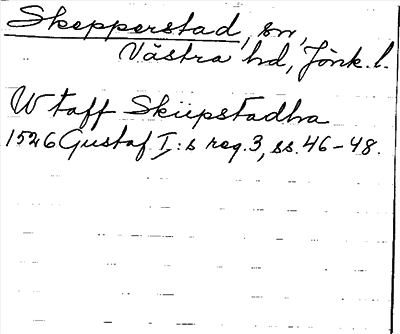 Skepperstad, sn,
Västra hd, Jönk. l.
W taff Skiipstadha
1526 Gustaf I:s reg. 3, ss. 46-48.